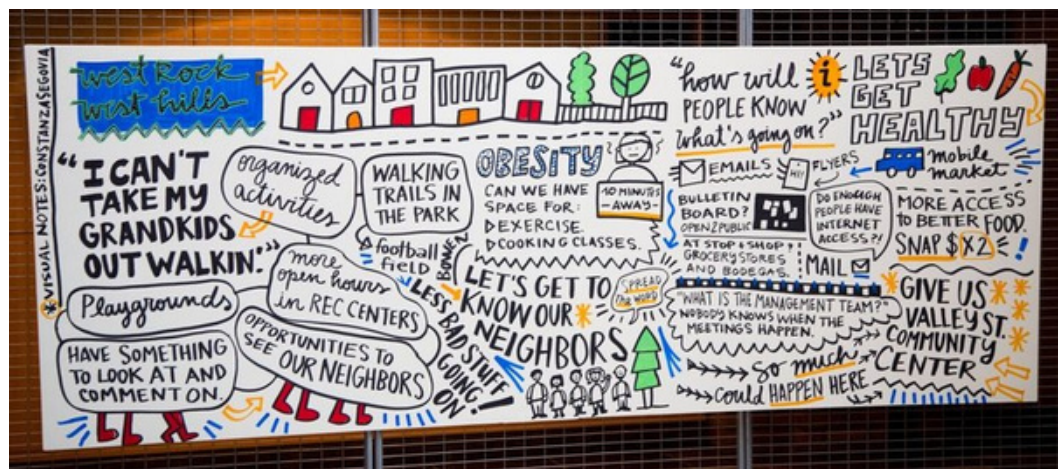 VISUAL NOTES: CONSTANZA SEGOVIA
west Rock
west hills
"I CAN'T
TAKE MY
GRANDKIDS
OUT WALKIN'."
Playgrounds
HAVE SOMETHING
TO LOOK AT AND
COMMENT ON.
organized
activities
WALKING
TRAILS IN
THE PARK
football
field
more
open hours
in REC CENTERS
OPPORTUNITIES TO
SEE OUR NEIGHBORS
LESS BAD STUFF
GOING
ON!
OBESITY
CAN WE HAVE
SPACE FOR:
EXERCISE.
COOKING CLASSES.
10 MINUTES
-AWAY-
LET'S GET TO
KNOW OUR
NEIGHBORS
SPREAD
the WORD
"how will
PEOPLE KNOW
what's going on?"
i
EMAILS
HI!
FLYERS
BULLETIN
BOARD?
OPEN 2 PUBLIC
AT STOP & SHOP??
GROCERY STORES
AND BODEGAS.
DO ENOUGH
PEOPLE HAVE
INTERNET
ACCESS?!
MAIL
"WHAT IS THE MANAGEMENT TEAM?"
NOBODY KNOWS WHEN THE
MEETINGS HAPPEN.
So much
could HAPPEN HERE
LETS
GET
HEALTHY
mobile
market
MORE ACCESS
to BETTER FOOD.
SNAP $ X2
!
GIVE US
VALLEY ST.
COMMUNITY
CENTER